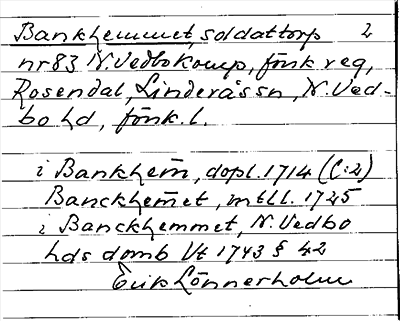 Bankhemmet, soldattorp 2
nr 83 N. Vedbo komp, jönk reg,
Rosendal, Linderås sn, N. Ved-
bo hd, jönk. l.
i Bankhem̄, dopl. 1714 (C:2)
Banckhem̄et, mtll. 1725
i Banckhemmet, N. Vedbo
hds domb Vt 1743 § 42
Erik Lönnerholm